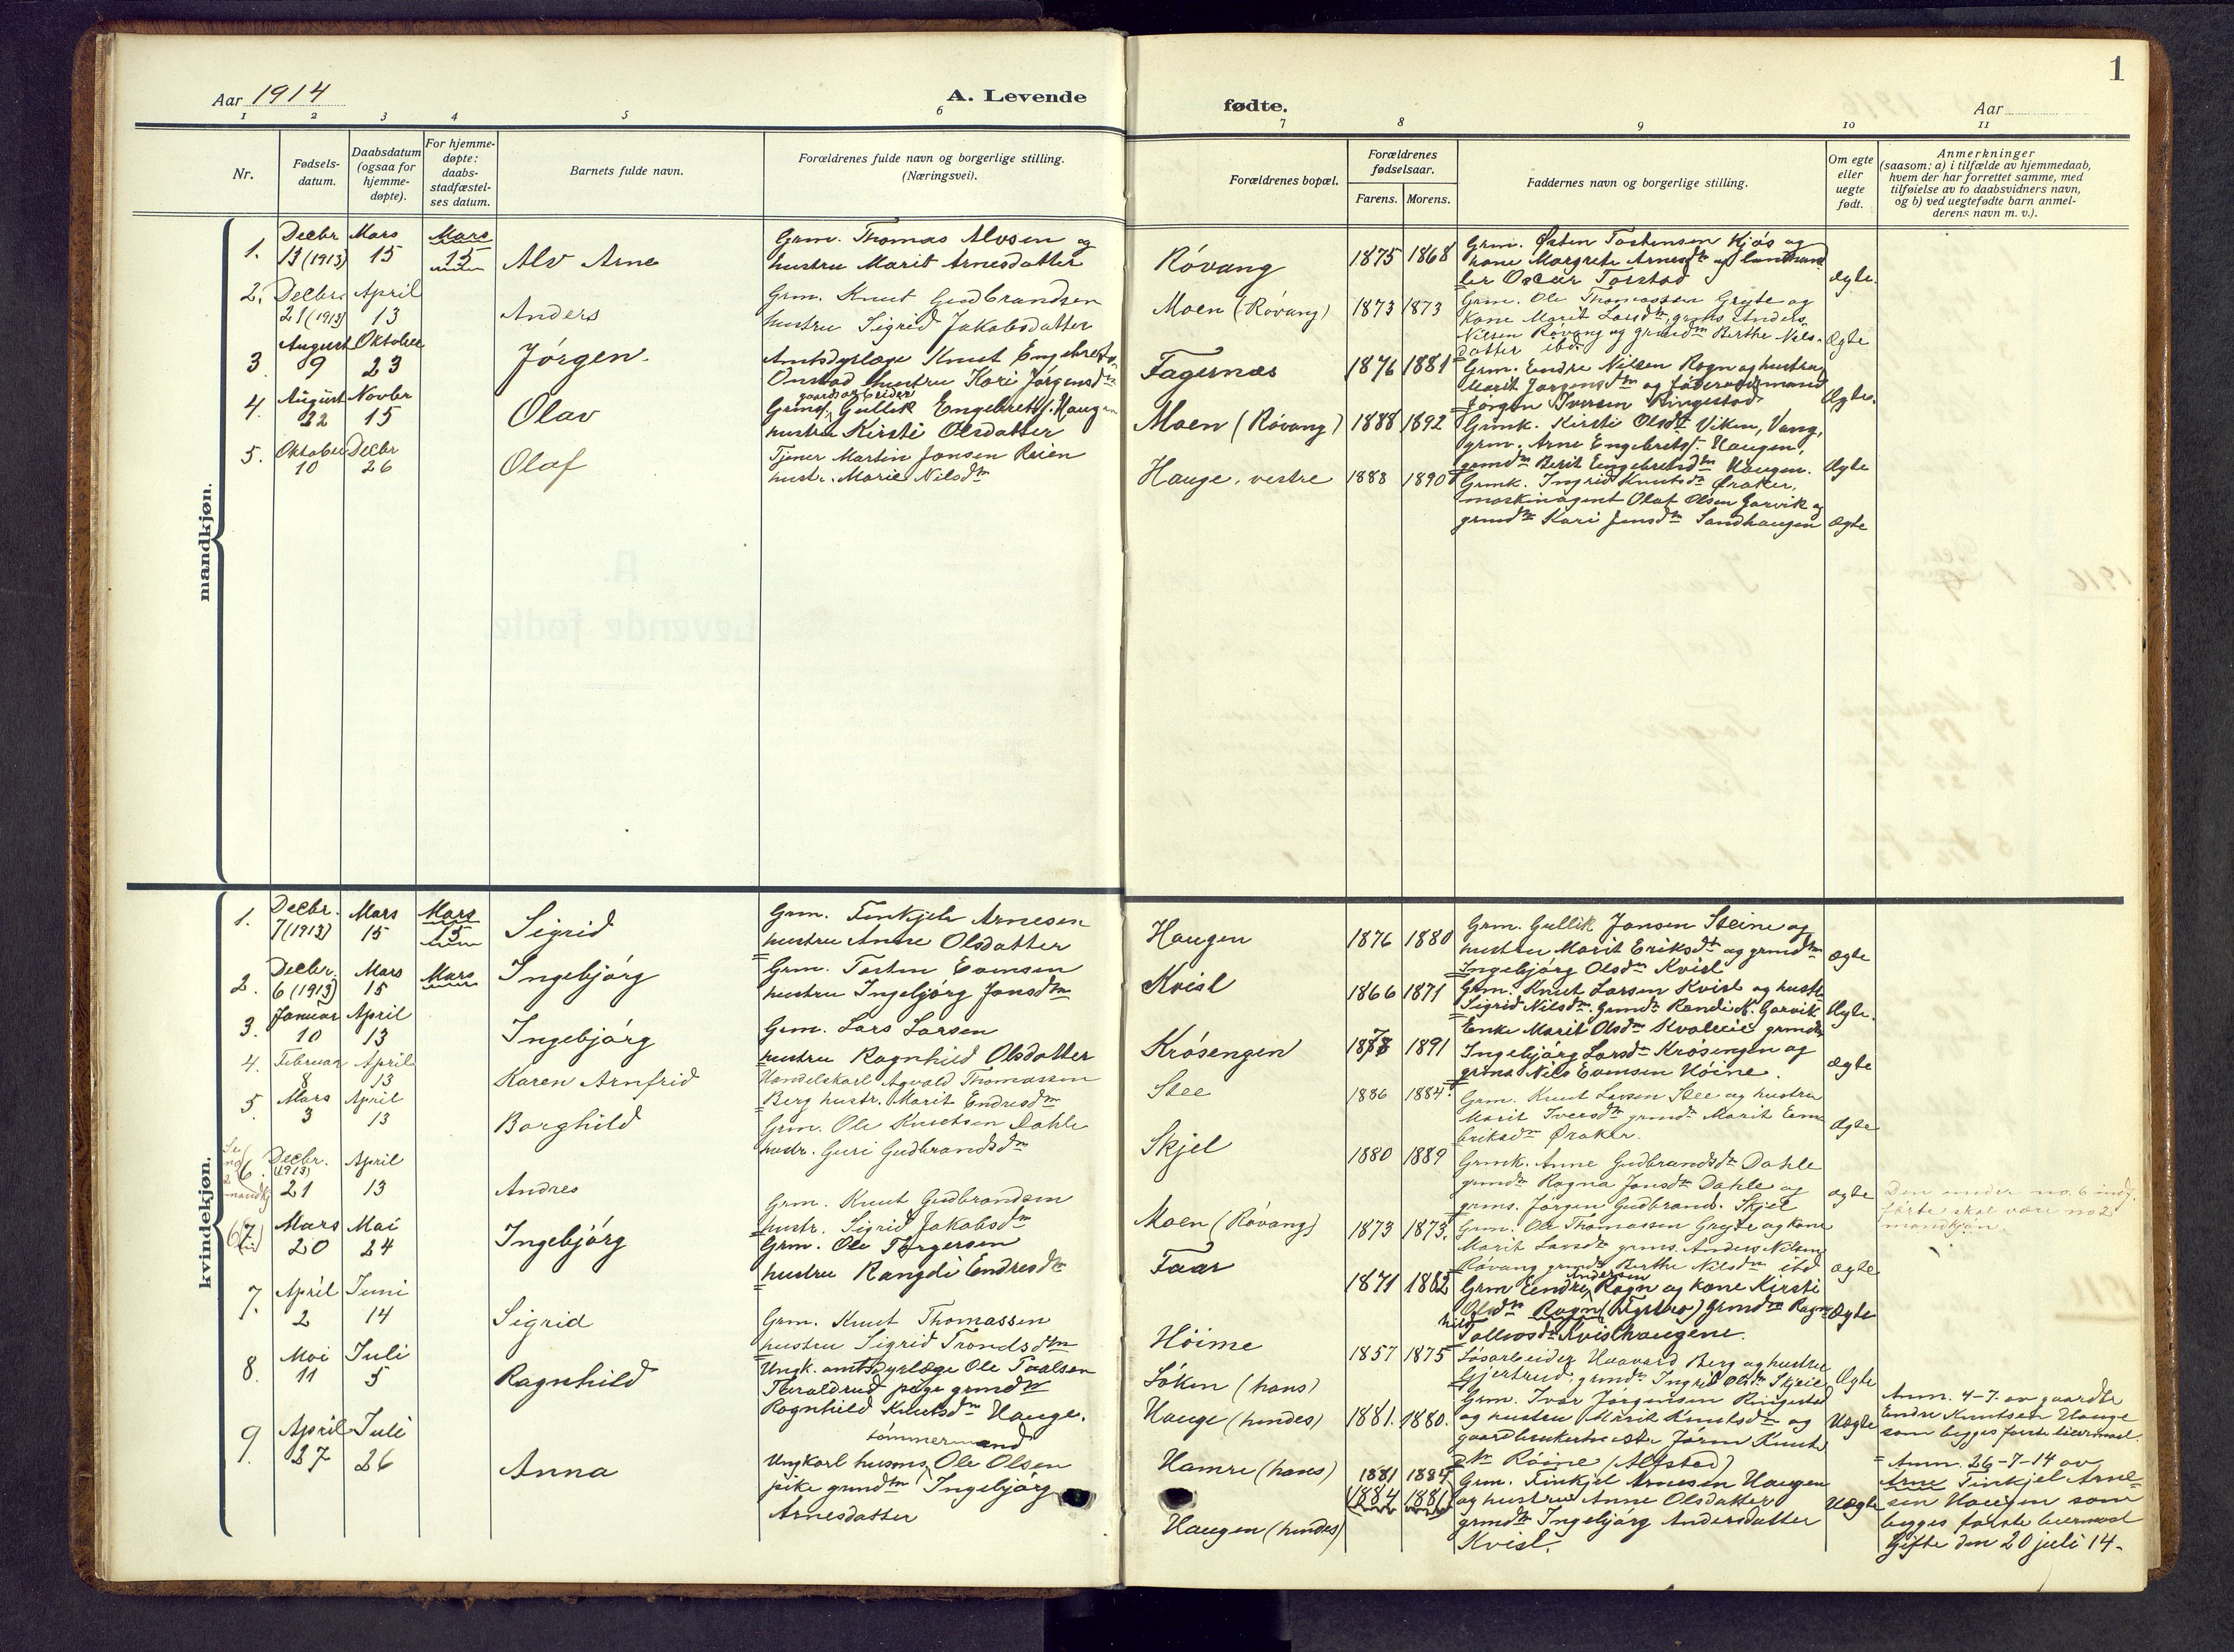 1
Aar 1914
A. Levende
fødte.
Aar
1 2 3 4 5 6 7 8 9 10 11
Nr.
Fødsels-
datum.
Daabsdatum
(ogsaa for
hjemme-
døpte).
For hjemme-
døpte:
daabs-
stadfæstel-
ses datum.
Barnets fulde navn.
Forældrenes fulde navn og borgerlige stilling.
(Næringsvei).
Forældrenes bopæl.
Forældrenes
fødselsaar.
Farens. Morens.
Faddernes navn og borgerlige stilling.
Om egte
eller
uegte
født.
Anmerkninger
(saasom: a) i tilfælde av hjemmedaab,
hvem der har forrettet samme, med
tilføielse av to daabsvidners navn,
og b) ved uegtefødte barn anmel-
derens navn m. v.).
mandkjøn.
1.
Decbr Mars Mars
13 (1913) 15 15
Alv Arne
Grm. Thomas Alvsen og
hustru Marit Arnesdatter
Róvang
1875 1868
Grm. Østen Tostensen Kjós og
kone Margrete Arnesdtr og landhand
ler Oscar Torstad
Ægte.
2.
Decbr. April
21 (1913) 13
Anders
Grm. Knut Gudbrandsen
hustru Sigrid Jakobsdatter
Moen (Róvang)
1873 1873
Grm. Ole Thomassen Gryte og
kone Marit Larsdtr, grms Anders
Nilsen Róvang og grmdtr Berthe Nils-
datter ibd
Ægte
3
August Oktober
9 23
Jórgen.
Amtsdyrlæge Knut Engebrets.
Onstad hustru Kari Jørgensdtr
Fagernæs
1876 1881
Grm. Endre Nilsen Rogn og hustru
Marit Jørgensdtr og føderaadsmand
Jórgen Iversen Ringestad
Ægte.
4.
August Novbr
22 15
Olav
gaardsarbeider
Grms. Gullik Engebrets. Haugen
hustru Kirsti Olsdatter
Moen (Róvang)
1888 1892
Grmk. Kirsti Olsdtr Viken, Vang,
grm. Arne Engebrets. Haugen,
grmdtr Berit Engebretsdtr Haugen.
Ægte
5.
Oktober Decbr
10 26
Olaf
Tjener Martin Jansen Reien
hustr. Marie Nilsdtr
Hauge, vestre
1883 1890
Grmk. Ingrid Knutsdtr Øraker,
maskinagent Olaf Olsen Garvik og
grmdtr Kari Jensdtr Sandhaugen
Ægte
kvindekjøn.
1.
Decbr. Mars Mars
7 (1913) 15 15
Sigrid
Grm. Finkjel Arnesen
hustru Anne Olsdatter
Haugen
1876 1880
Grm. Gullik Jansen Steine og
hustru Marit Eriksdtr og grmdtr
Ingebjórg Olsdtr Kvisl
Ægte
2.
Decbr. Mars Mars
6 (1913) 15
Ingebjórg
Grm. Tosten Evensen
hustru Ingebjórg Jonsdtr
Kvisl
1866 1871
Grm. Knut Larsen Kvisl og hustr.
Sigrid Nilsdtr. Grmdtr Randi K. Garvik
Ægte.
3.
Januar April
10 13
Ingebjórg
Grm. Lars Larsen
hustru Ragnhild Olsdatter
Krósengen
1878 1891
Enke Marit Olsdtr Kvaleeie grmdtr
Ingebjórg Larsdtr Krósengen og
grms Nils Evensen Hóine.
Ægte
4.
Februar April
8 13
Karen Arnfrid
Handelskarl Agvald Thomassen
Berg hustr. Marit Endresdtr
Stee
1886 1884.
Grm. Knut Larsen Stee og hustru
Marit Iversdtr grmdtr Marit Enn
Eriksdtr Øraker.
Ægte
5.
Mars April
3 13
Borghild
Grm. Ole Knutsen Dahle
hustr. Guri Gudbrandsdtr
Skjel
1880 1889
Grmk. Anne Gudbrandsdtr Dahle
grmdtr Ragna Jonsdtr Dahle og
grms. Jórgen Gudbrands. Skjel
Ægte
Se no 2 mandkj
6.
Decbr. April
(1913)
21 13
Andres
Grm. Knut Gudbrandsen
hustr. Sigrid Jakobsdtr
Moen (Róvang)
1873 1873.
Grm. Ole Thomassen Gryte og kone
Marit Larsdtr grms. Anders Nilsen
Róvang grmdtr Berthe Nilsdtr ibd
Ægte
Den under no. 6 ind.
førte skal være no 2
mandkjøn.
6 (7
Mars Mai
20 24
Ingebjórg
Grm. Ole Torgersen
hustru Rangdi Endresdtr
Faar
1871 1882
Andersen
Grm Endre Rogn og kone Kirsti
Olsdtr Rogn (Nystro) grmdtr Ragn
hild Tollevsdtr Kvislhaugene.
Ægte
7.
April Juni
2 14
Sigrid
Grm. Knut Thomassen
hustru Sigrid Trondsdtr
Hóime
1857 1875
Lósarbeider Haavard Berg og hustru
Gjertrud, grmdtr Ingrid Olsdtr Skjeie
Ægte
8.
Mai Juli
11 5
Ragnhild
Ungk. amtsdyrlæge Ole Paalsen
Haraldrud pige grmdtr
Ragnhild Knutsdtr Hauge.
Lóken (hans)
Hauge (hendes)
1881. 1880.
Grm. Ivar Jórgensen Ringestad
og hustru Marit Knutsdtr og
gaardbrukerhustr Jórn Knuts
dtr Róine (Alfstad)
Uægte
Anm. 4-7. av gaardbr
Endre Knutsen Hauge
som begges fórste leiermaal.
9.
April Juli
27 26
Anna
tómmermand
Ungkarl husms. Ole Olsen
pike grmdtr Ingebjórg
Arnesdatter
Hamre (hans)
Haugen (hendes)
1881 1884
1884 1881
Grm. Finkjel Arnesen Haugen
og hustru Anne Olsdatter
grmdtr Ingebjórg Andersdatter
Kvisl.
Uægte
Anm. 26-7-14 av
Arne Finkjel Arne-
sen Haugen som
begges fórste leiermaal
Gifte den 20 juli 14.